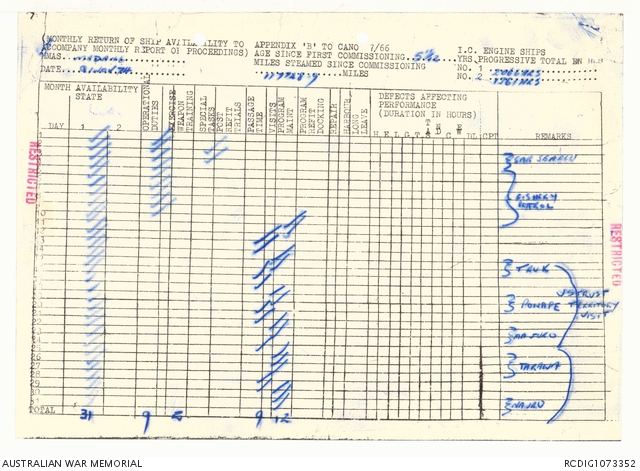 (MONTHLY RETURN OF SHIP AVAILABILITY TO APPENDIX 'B' TO CANO 7/66 I.C. ENGINE SHIPS
ACCOMPANY MONTHLY REPORT OF PROCEEDINGS) AGE SINCE FIRST COMMISSIONING. 5 1/12 YRS. PROGRESSIVE TOTAL EN HRS
HMAS. MADANG MILES STEAMED SINCE COMMISSIONING NO. 1
DATE. MILES NO. 2
MONTH AVAILABILITY STATE
OPERATIONAL DUTIES
EXERCISE WEAPON TRAINING
SPECIAL CASES
POST REFIT TRIALS
PASSAGE TIME
VISITS
PROGRAM MAINT
PROGRAM REFIT DOCKING
REPAIR
HARBOUR LONG LEAVE
DEFECTS AFFECTING
PERFORMANCE
(DURATION IN HOURS)
DAY 1 2
REMARKS
SAR SEARCH
FISHERY
PATROL
TRUK
US TRUST
PONAPE TERRITORY
VISIT
MAJURO
TARAWA
NAURU
TOTAL 31 9 9 12
RESTRICTED
RESTRICTED
AUSTRALIAN WAR MEMORIAL RCDIG1073352